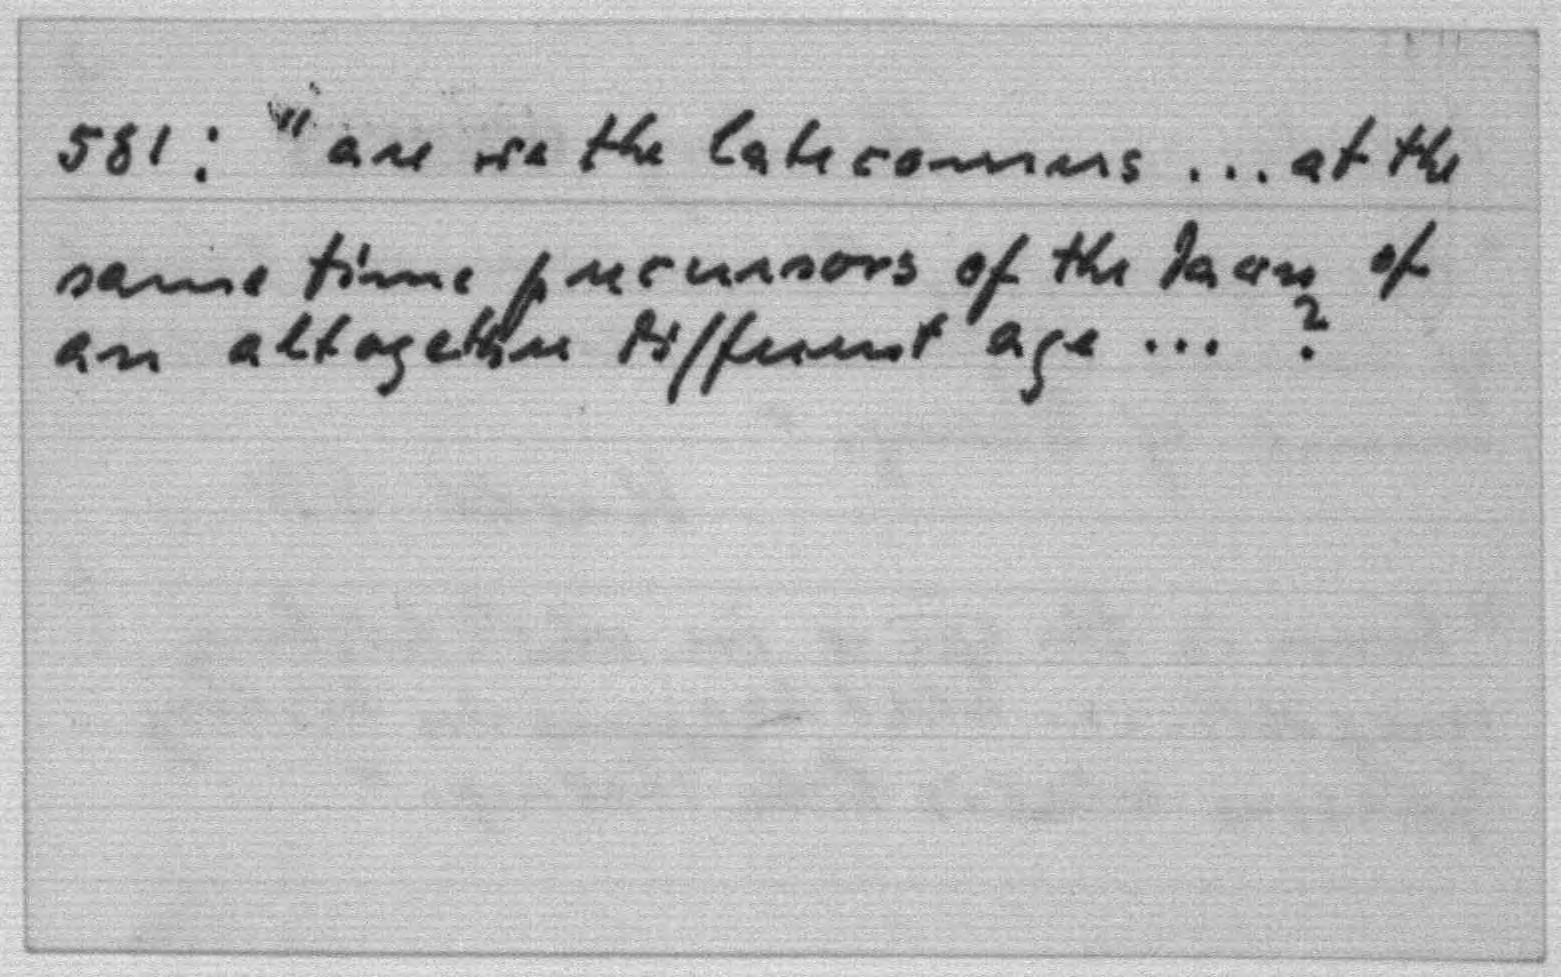 581: "are we the latecomers ... at the
same time precursors of the dawn of
an altogether different age ... ?